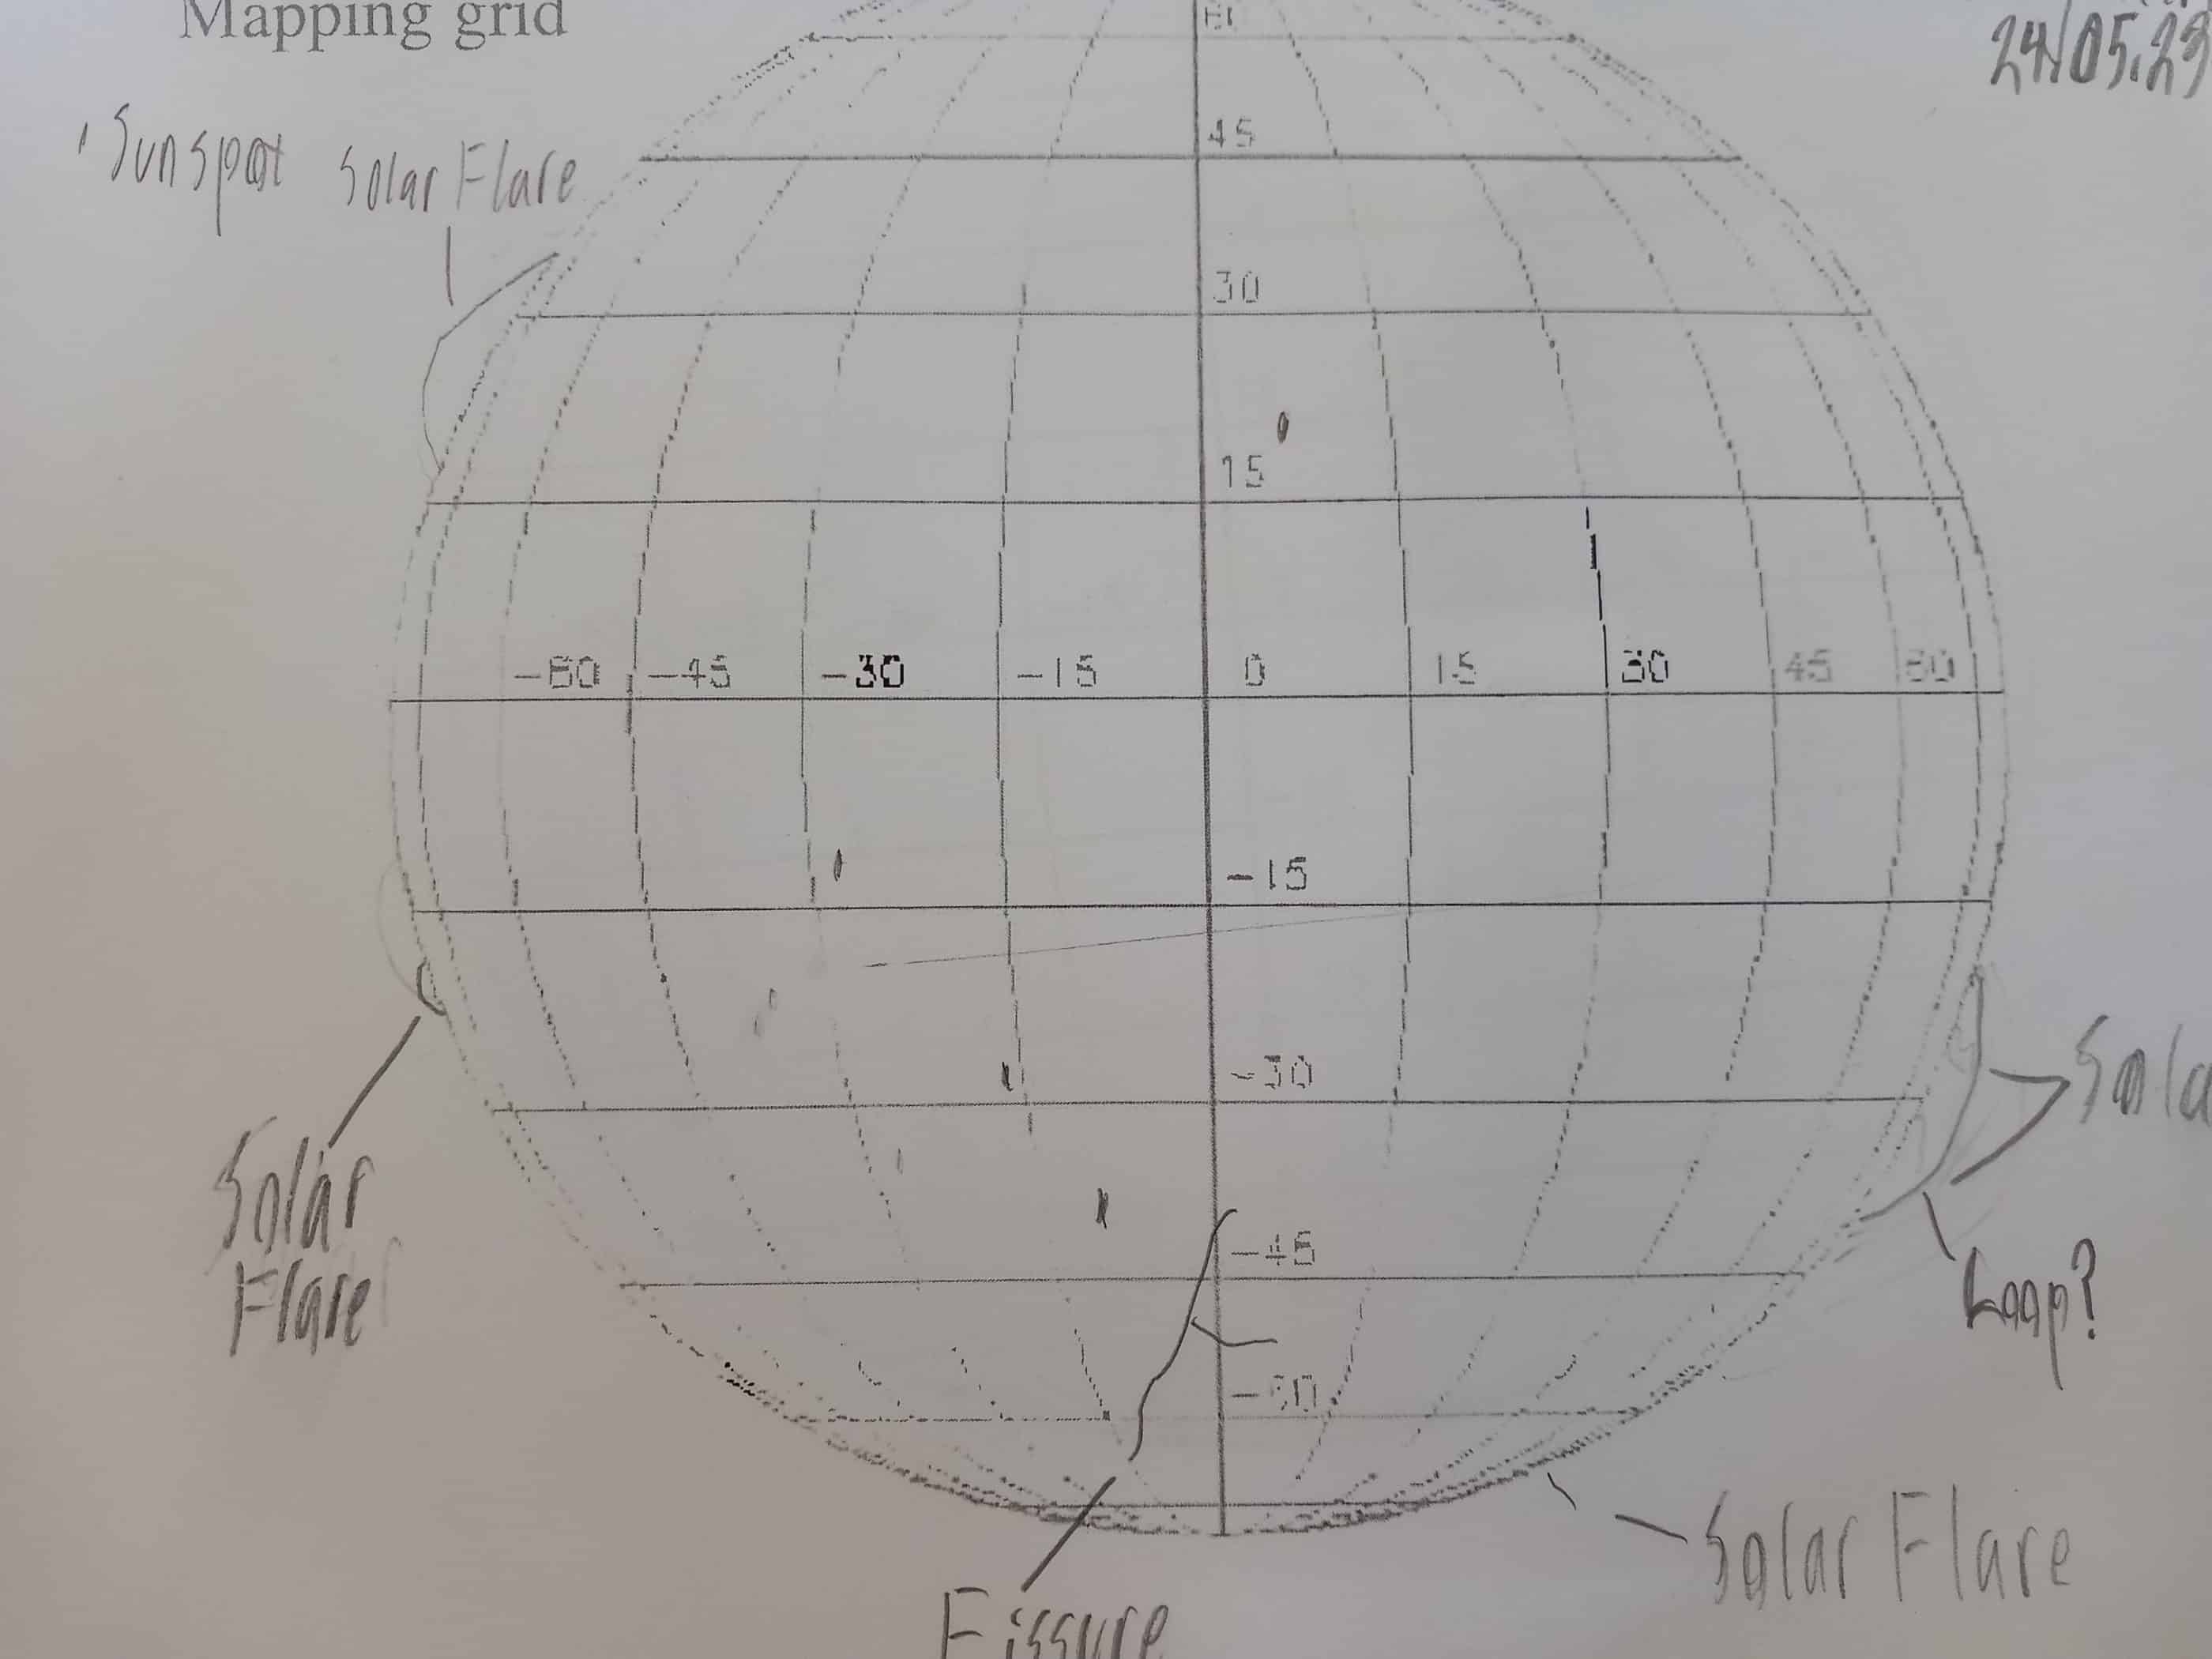 Mapping grid
24/05.23
Sunspot
Solar Flare
45
30
15
-60 -45 -30 -15 0 15 30 45 60
-15
-30
Sola
Solar
Flare
-45
Loop?
-60
Solar Flare
Fissure